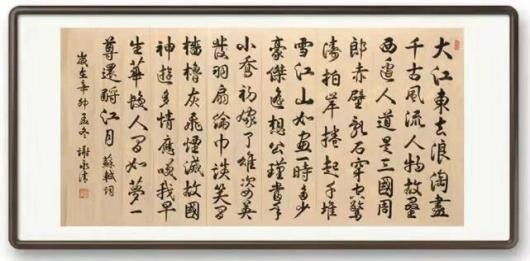 大江東去浪淘盡
千古風流人物故壘
西邊人道是三國周
郎赤壁乱石穿空驚
濤拍岸捲起千堆
雪江山如畫一時多少
豪傑遙想公瑾當年
小喬初嫁了雄姿英
發羽扇綸巾談笑間
檣櫓灰飛煙滅故國
神遊多情應笑我早
生華髮人間如夢一
尊還酹江月 蘇軾詞
歲在辛卯孟冬 謝永清